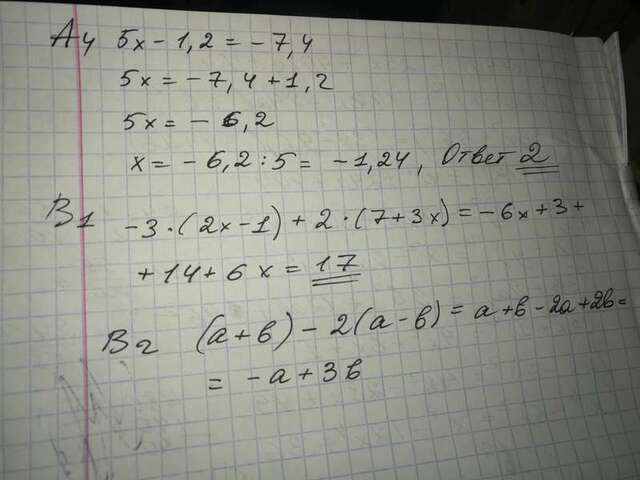 A4 5x - 1,2 = - 7,4
5x = - 7,4 + 1,2
5x = - 6,2
x = - 6,2 : 5 = - 1,24, Ответ 2
B1 -3 · (2x - 1) + 2 · (7 + 3x) = - 6x + 3 +
+ 14 + 6x = 17
B2 (a + b) - 2(a - b) = a + b - 2a + 2b =
= - a + 3b